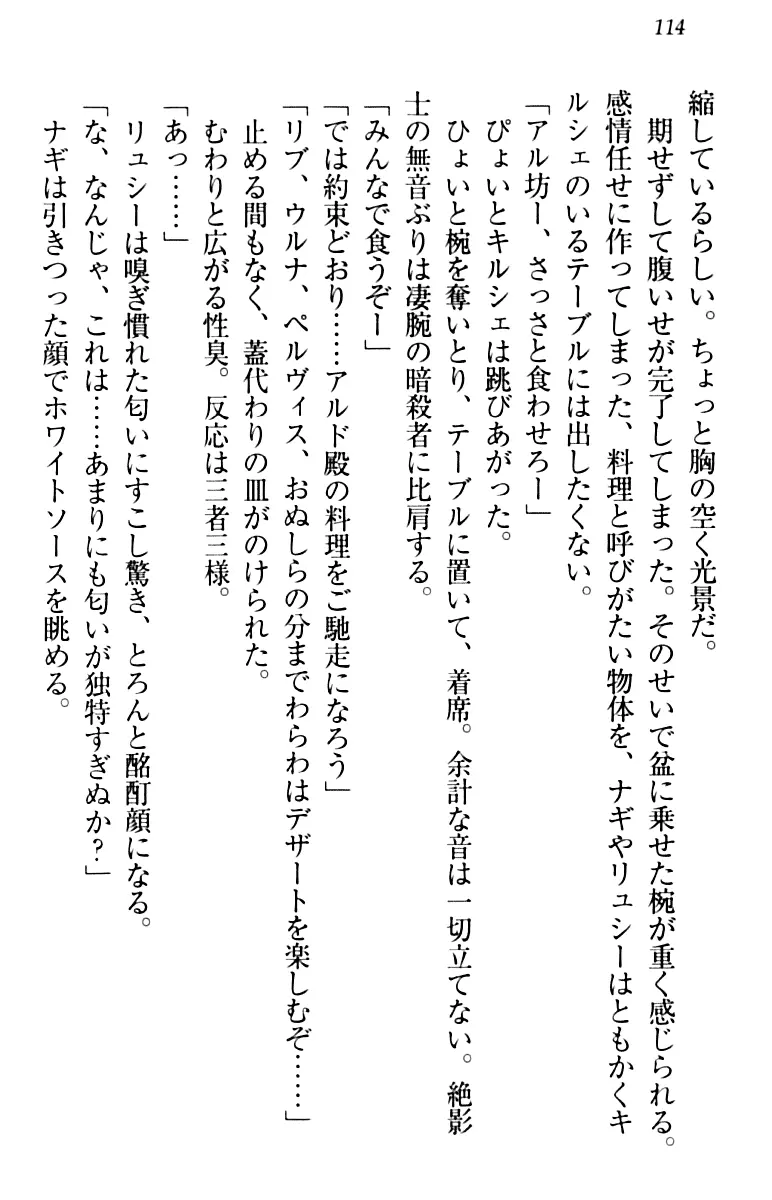 114
縮しているらしい。ちょっと胸の空く光景だ。
期せずして腹いせが完了してしまった。そのせいで盆に乗せた椀が重く感じられる。
感情任せに作ってしまった、料理と呼びがたい物体を、ナギやリュシーはともかくキ
ルシェのいるテーブルには出したくない。
「アル坊ー、さっさと食わせろー」
ぴょいとキルシェは跳びあがった。
ひょいと椀を奪いとり、テーブルに置いて、着席。余計な音は一切立てない。絶影
士の無音ぶりは凄腕の暗殺者に比肩する。
「みんなで食うぞー」
「では約束どおり……アルド殿の料理をご馳走になろう」
「リブ、ウルナ、ペルヴィス、おぬしらの分までわらわはデザートを楽しむぞ……」
止める間もなく、蓋代わりの皿がのけられた。
むわりと広がる性臭。反応は三者三様。
「あっ……」
リュシーは嗅ぎ慣れた匂いにすこし驚き、とろんと酩酊顔になる。
「な、なんじゃ、これは……あまりにも匂いが独特すぎぬか？」
ナギは引きつった顔でホワイトソースを眺める。